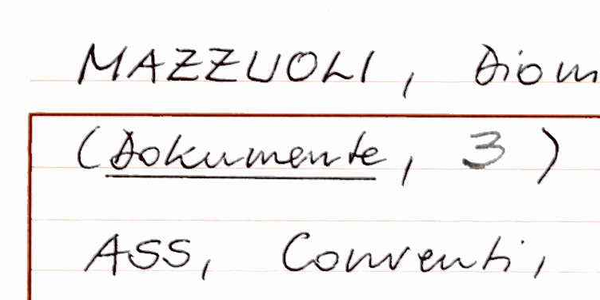 MAZZUOLI, Diom
(Dokumente, 3)
ASS, Conventi,